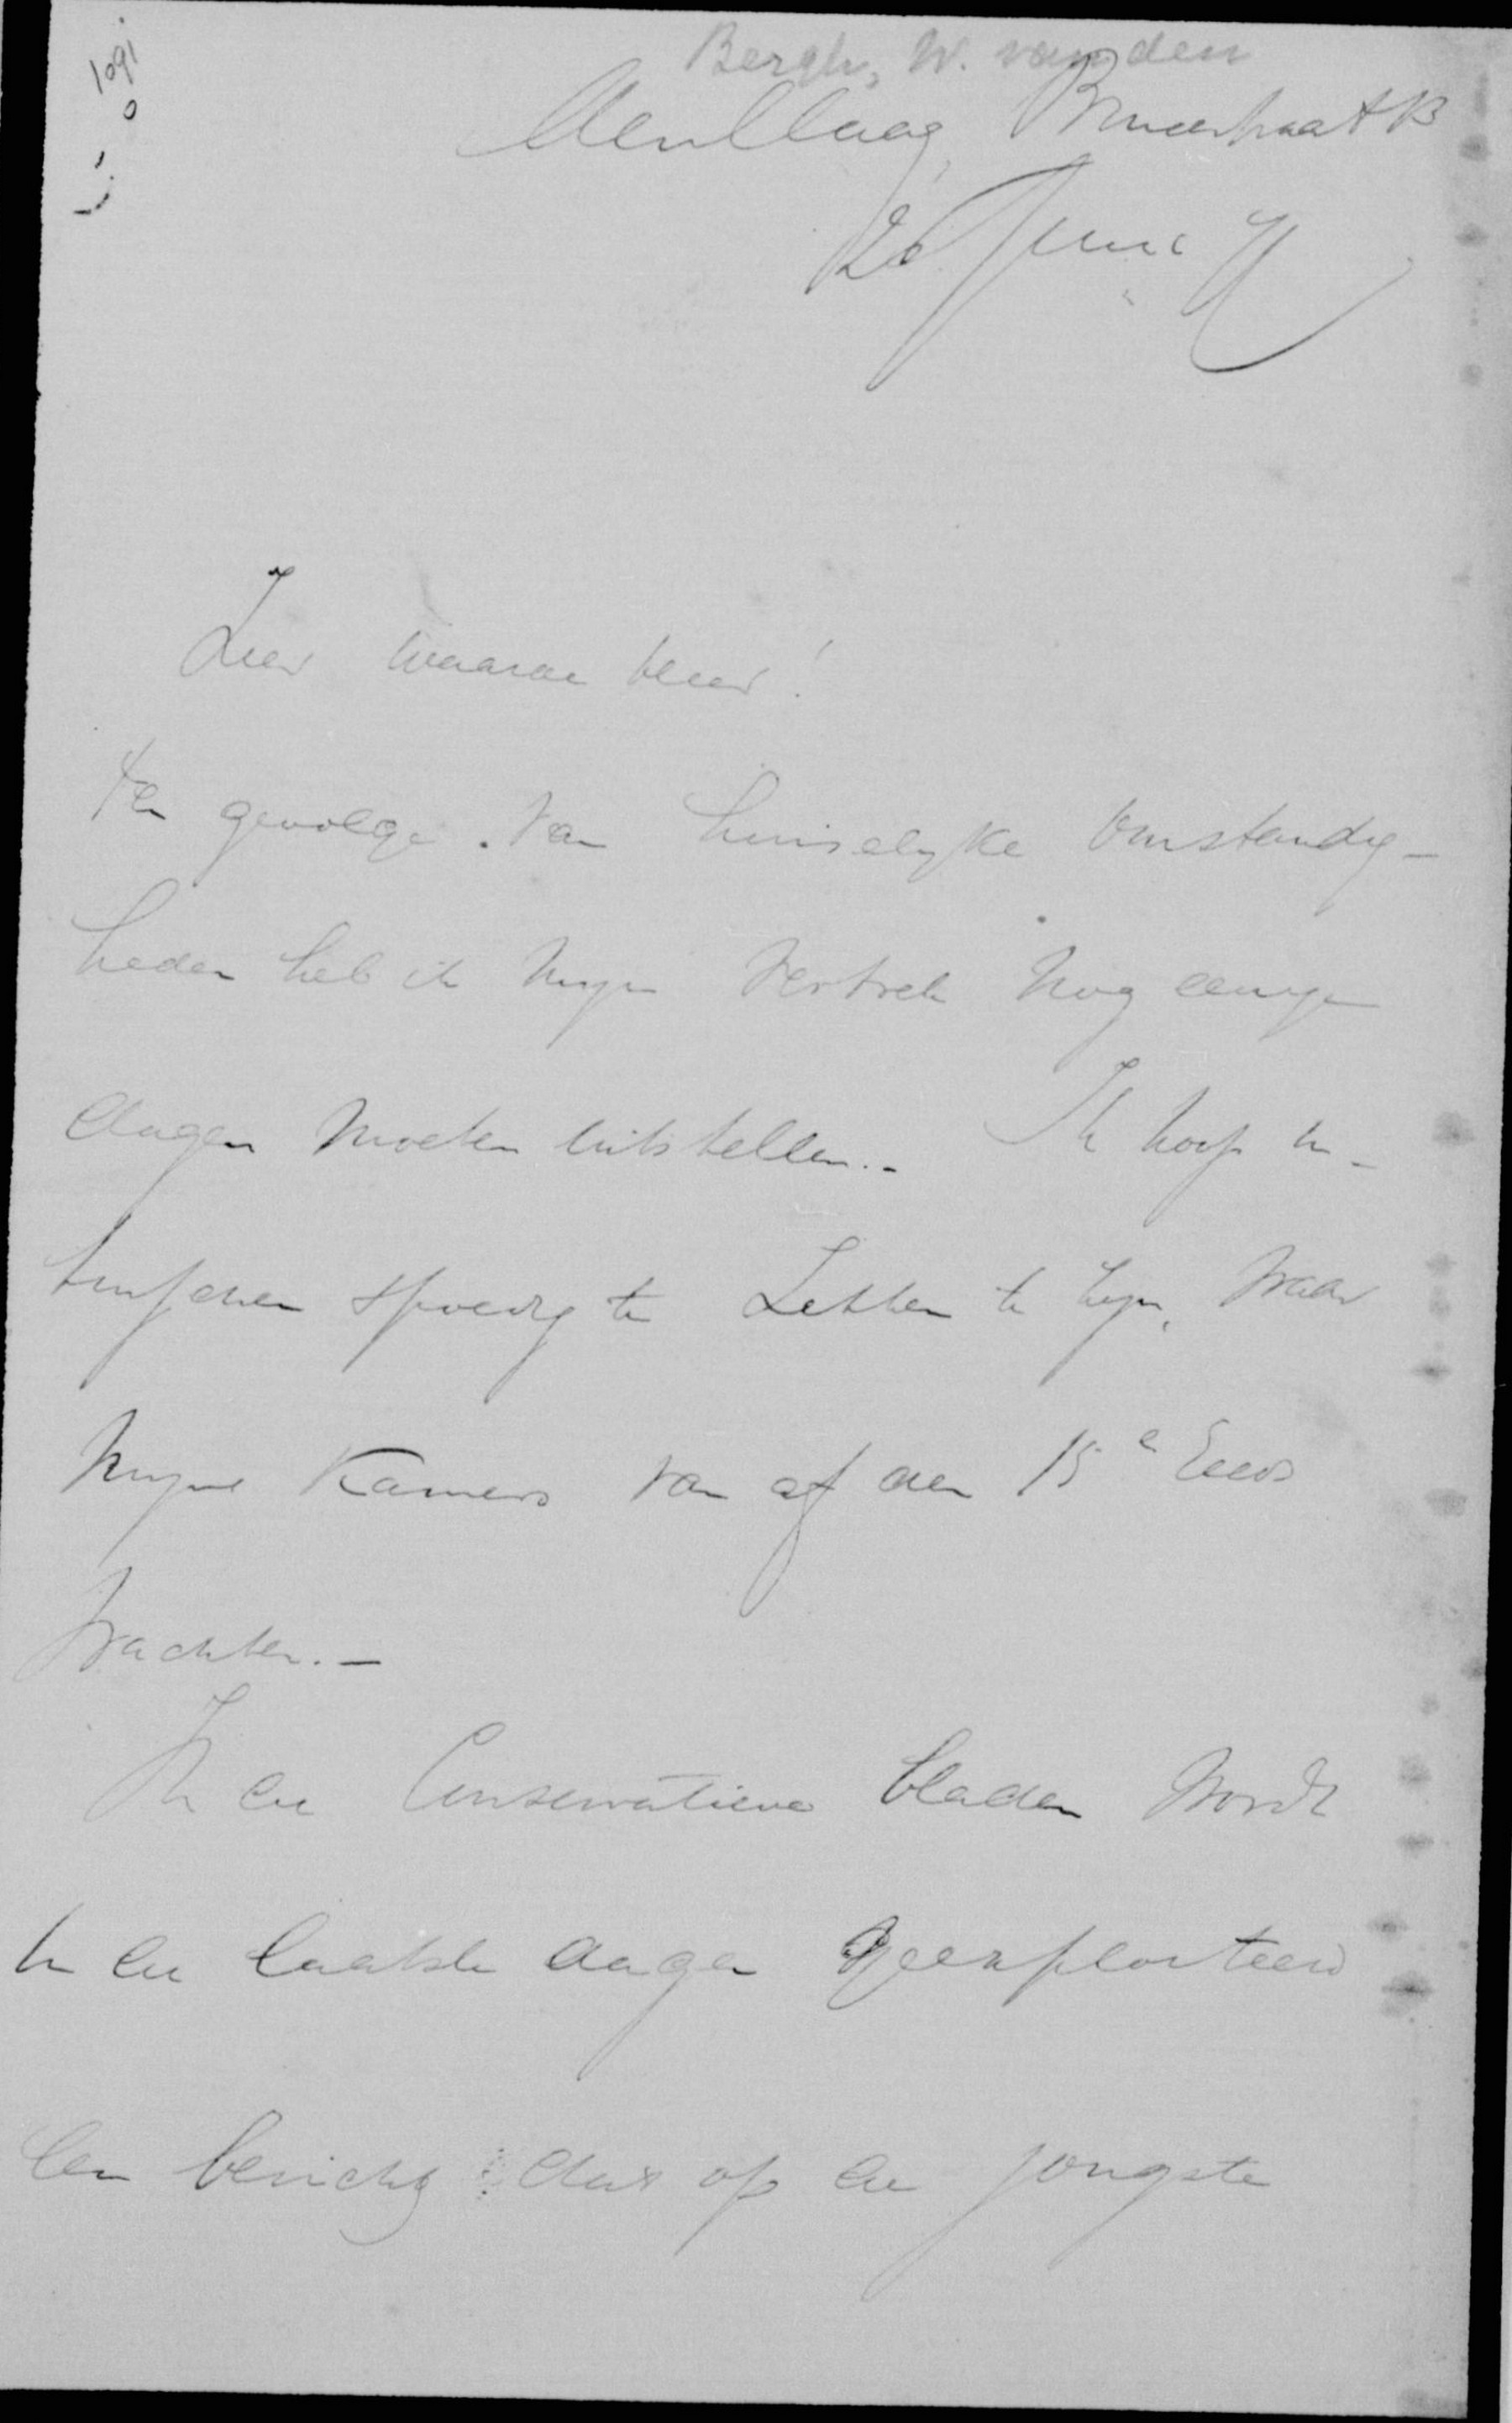 Bergh, W. van den
den Haag,
Juni
Zeer waarde heer!
Ten gevolge van huiselyke omstandig-
heden heb ik myn vertrek nog eenige
dagen moeten uitstellen.. Ik hoop in-
tusschen spoedig te Letten te zyn, waar
myne kamers van af den 15e
wachten. -
In de Conservatieve bladen wordt
in de laatste dagen geexploiteerd
een bericht dat op de jongste